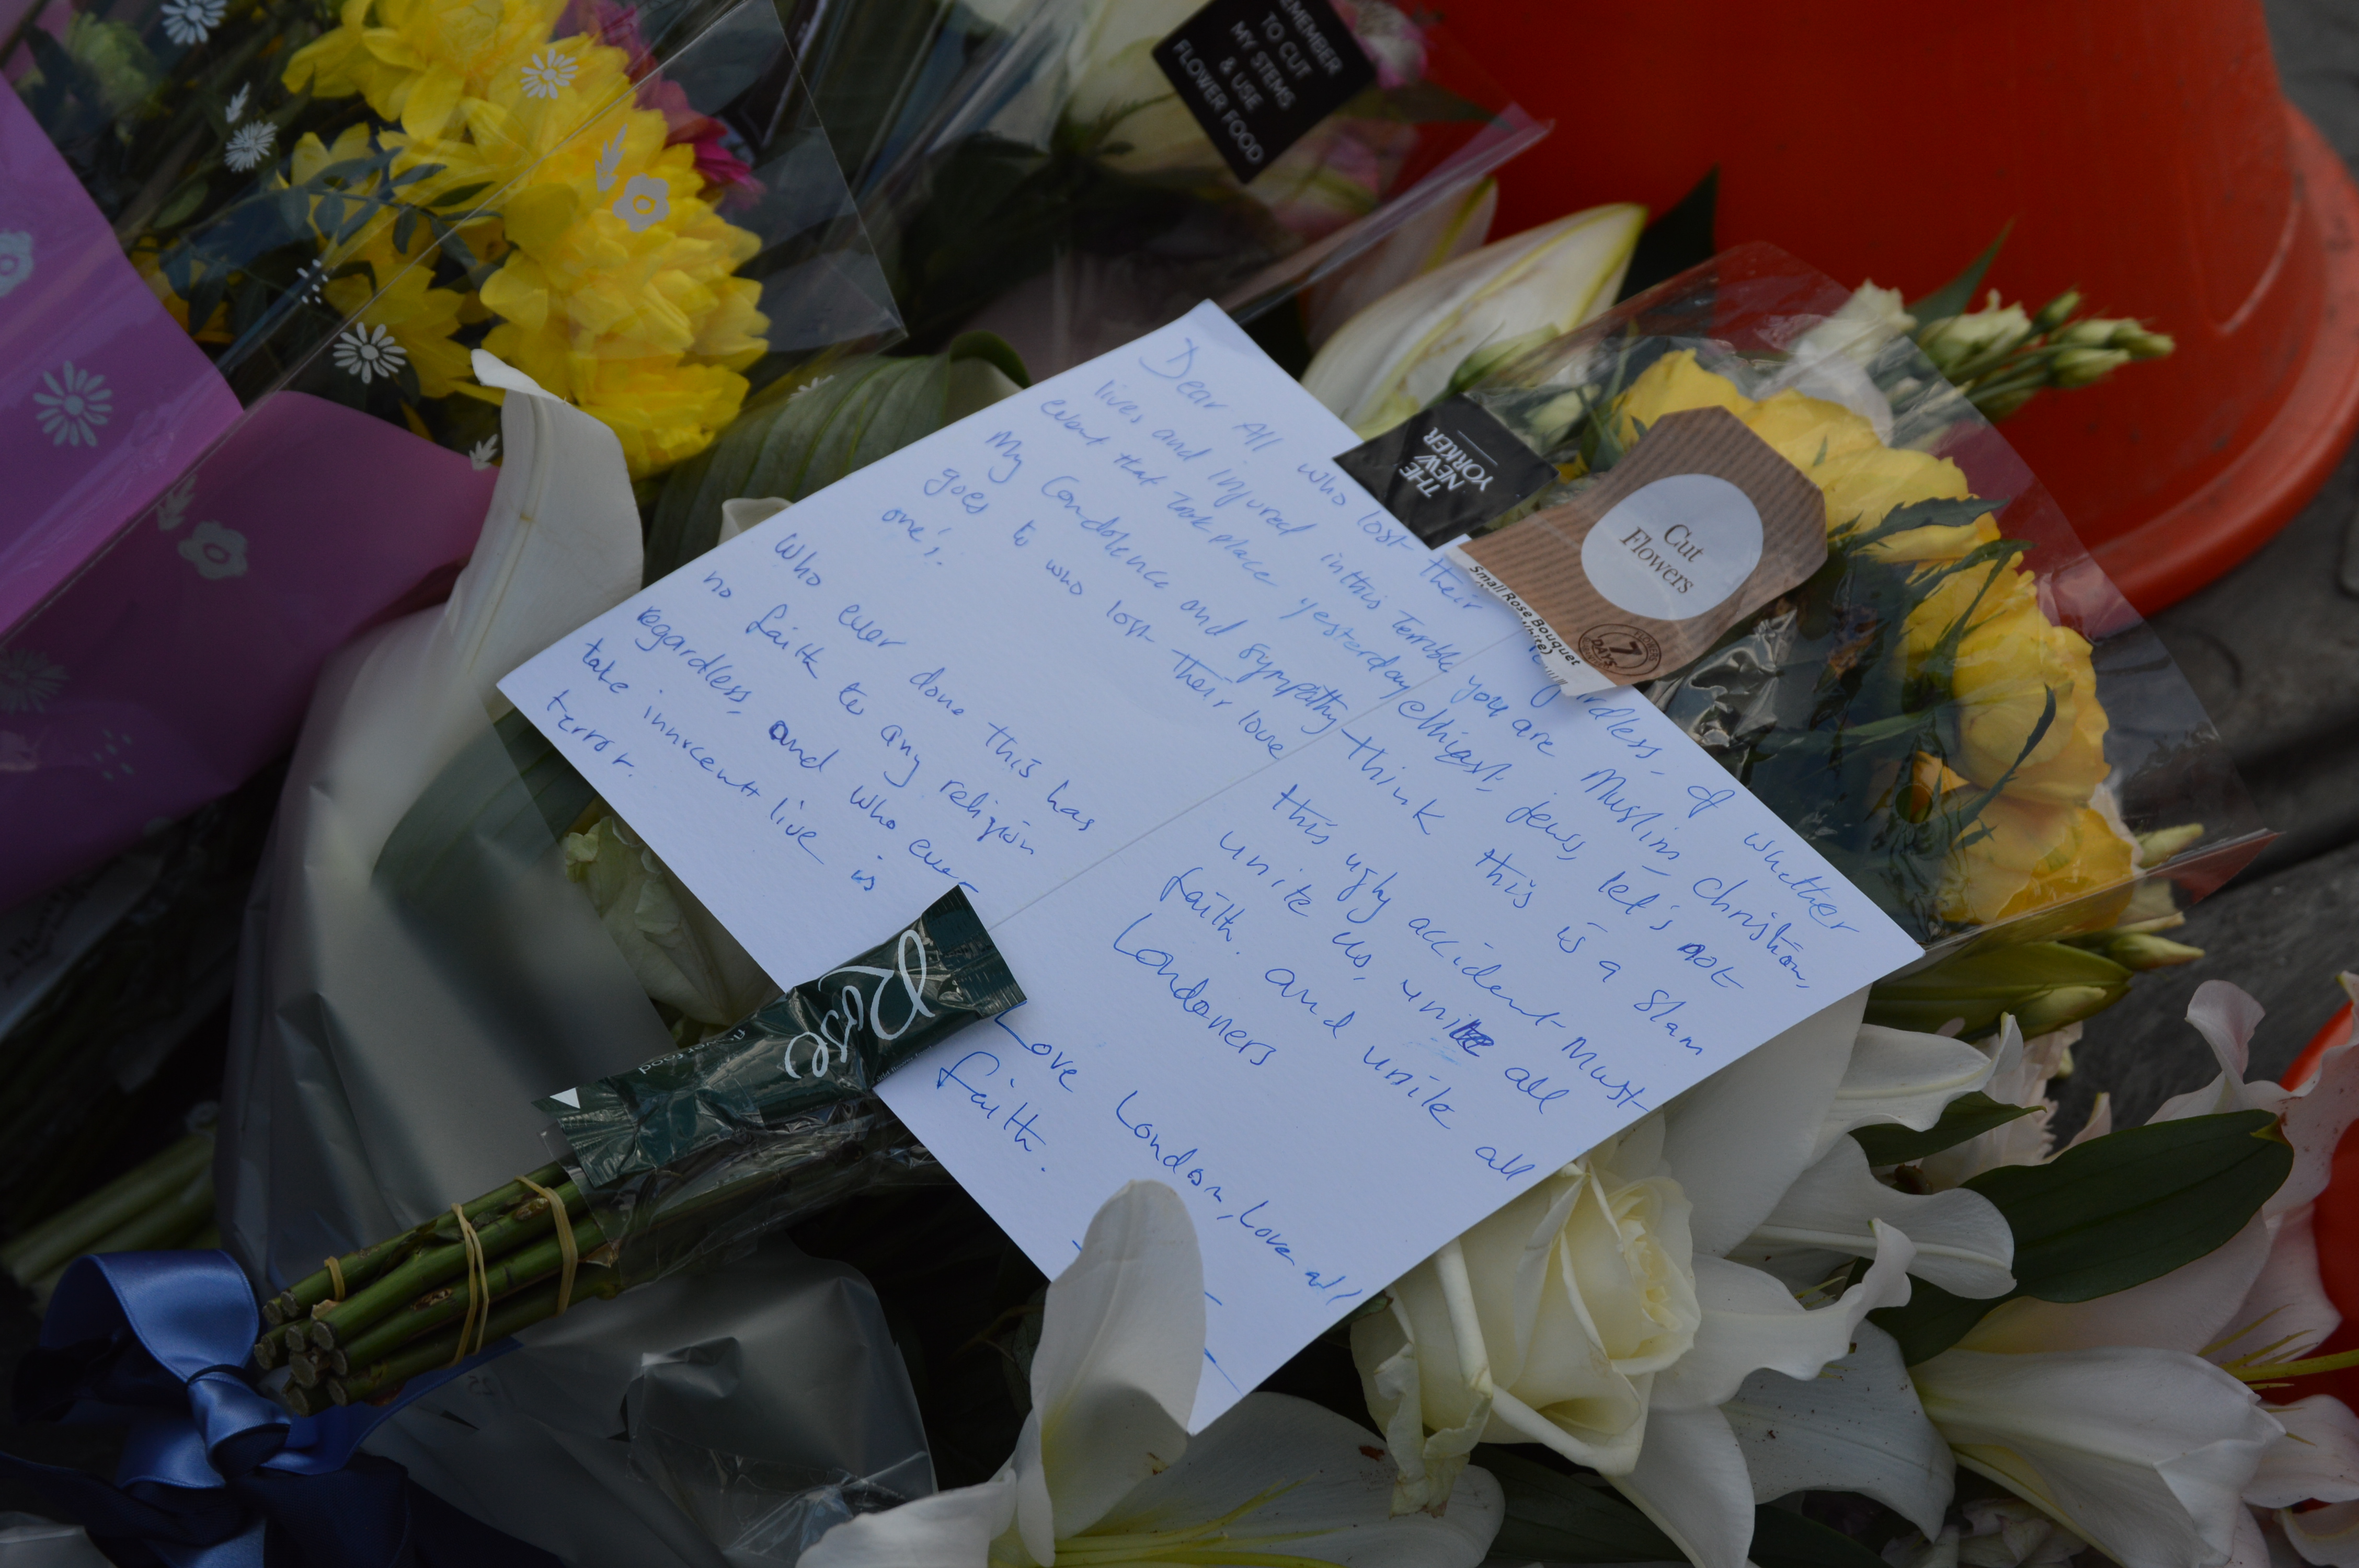 EMEMBER
TO CUT
MY STEMS
& USE
FLOWER FOOD
Dear All who lost their
lives and injured in this Terrible
event that took place yesterday
My Condolence and sympathy
goes to who lost their love
one's.
Who ever done this has
no faith to any religion
regardless, and who ever
take innrcent live is
terror.
THE
NEW
YORKER
Cut
Flowers
Small Rose Bouquet
White)
7
DAYS
rdless, of whether
you are Muslim, Christian,
Jews, let's not
think this is a slam
this ugly accident Must
unite us, unite all
faith. and unite all
Londoners
Love London, Love all
faith.
Rose